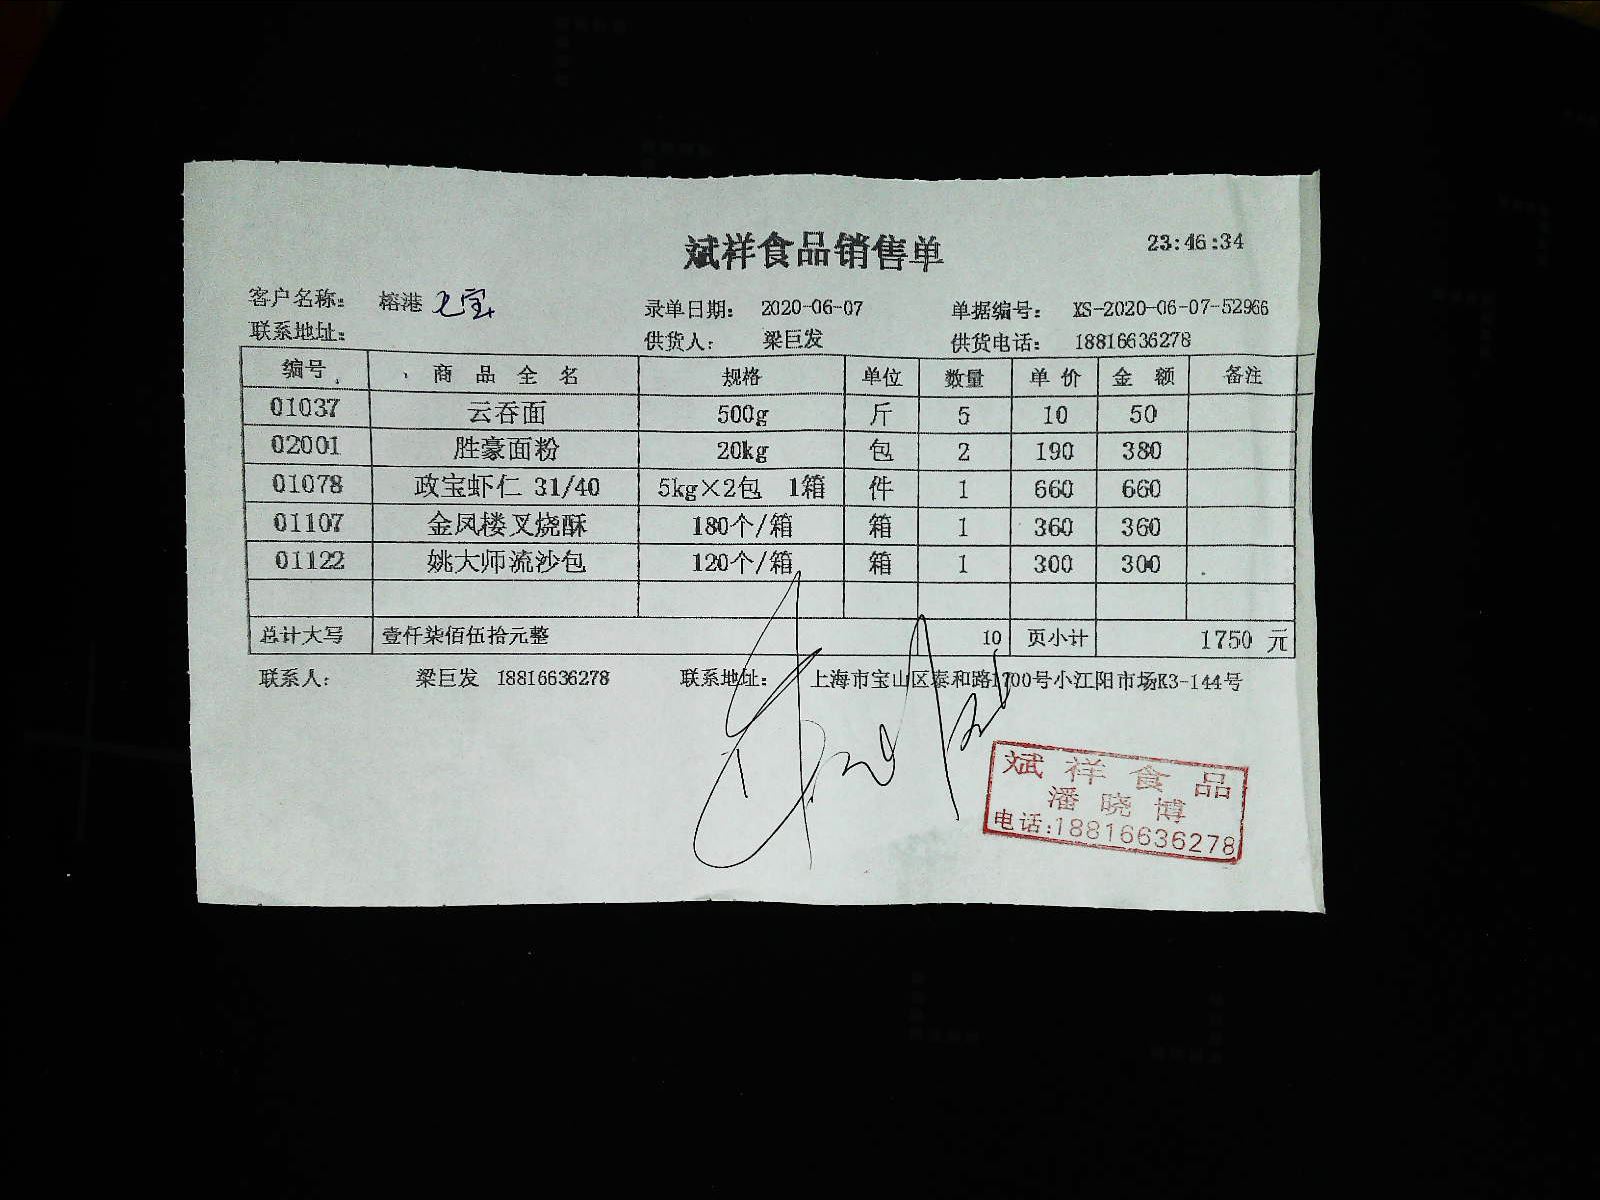 斌祥食品销售单 23:46:34
客户名称: 榕港 七宝 录单日期: 2020-06-07 单据编号: XS-2020-06-07-52966
联系地址: 供货人: 梁巨发 供货电话: 18816636278
编号 商品全名 规格 单位 数量 单价 金额 备注
01037 云吞面 500g 斤 5 10 50
02001 胜豪面粉 20kg 包 2 190 380
01078 政宝虾仁 31/40 5kg×2包 1箱 件 1 660 660
01107 金凤楼叉烧酥 180个/箱 箱 1 360 360
01122 姚大师流沙包 120个/箱 箱 1 300 300
总计大写 壹仟柒佰伍拾元整 10 页小计 1750 元
联系人: 梁巨发 18816636278 联系地址: 上海市宝山区泰和路1700号小江阳市场K3-144号
斌祥食品
潘晓博
电话:18816636278